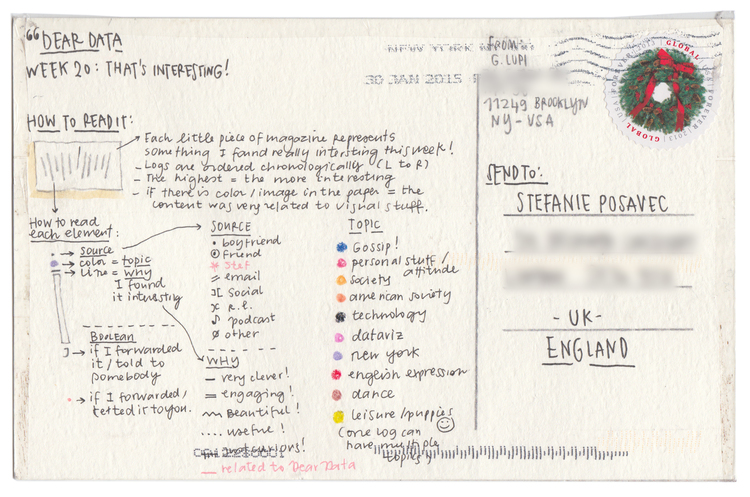 "DEAR DATA
WEEK 20: THAT'S INTERESTING!
FROM:
G. LUPI
11249 BROOKLYN
NY-USA
30 JAN 2015
GLOBAL
FOREVER
GLOBAL
HOW TO READ IT:
Each little piece of magazine represents
something I found really intersting this week!
- Logs are ordered chronologically (L to R)
- The highest = the more interesting
- if there is color/image in the paper = the
content was very related to visual stuff.
How to read
each element:
→ source
→ color = topic
→ line = why
I found
it interesting
Boolean
→ if I forwarded
it / told to
somebody
→ if I forwarded/
texted it to you.
SOURCE
boyfriend
friend
Stef
email
Social
R.L.
podcast
other
WHY
very clever!
engaging!
Beautiful!
useful!
related to Dear Data
TOPIC
Gossip!
personal stuff/
attitude
society
american society
technology
dataviz
new york
english expression
dance
leisure/puppies
(one log can
have multiple
topics)
SEND TO:
STEFANIE POSAVEC
- UK -
ENGLAND